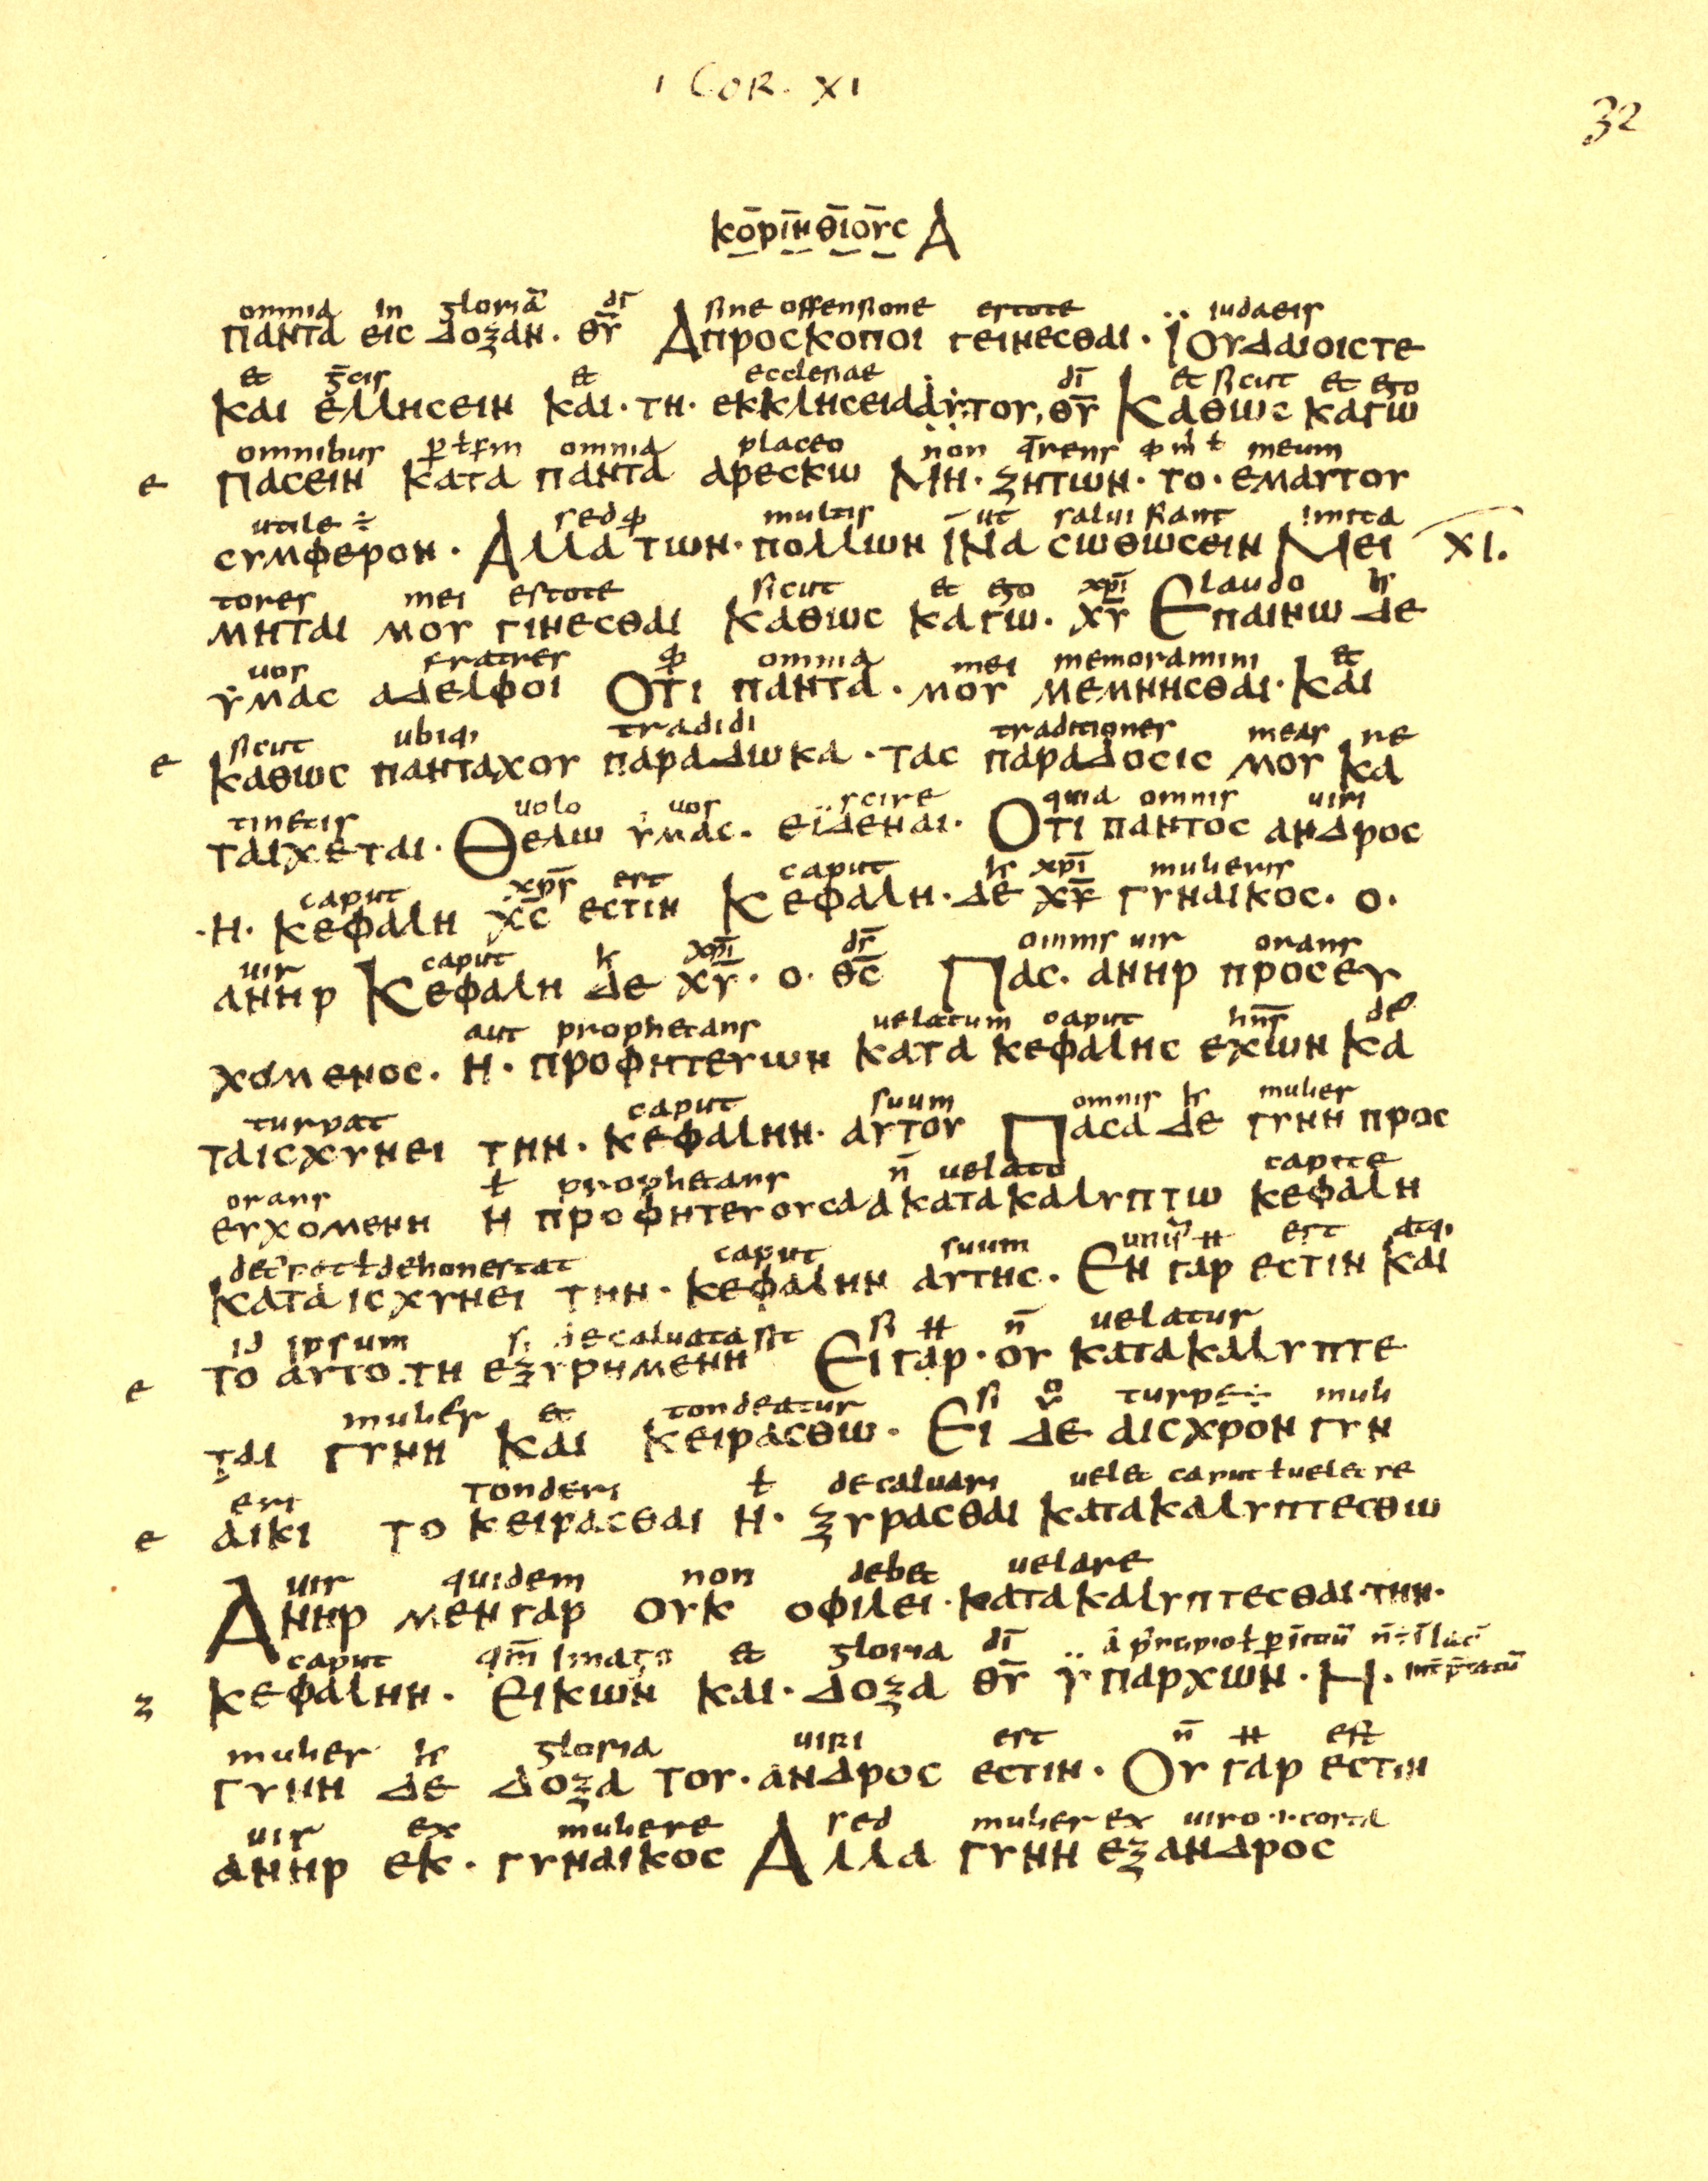 1 COR. XI
32
ΚΟΡΙΝΘΙΟΥC Α
omnia in gloriā dī sine offensione estote iudaeis
ΠΑΝΤΑ ΕΙC ΔΟΞΑΝ. ΘΥ ΑΠΡΟCΚΟΠΟΙ ΓΕΙΝΕCΘΑΙ. ΪΟΥΔΑΙΟΙCΤΕ
et et ecclesiae dī et sicut et ego
ΚΑΙ ΕΛΛΗCΕΙΝ ΚΑΙ. ΤΗ. ΕΚΚΛΗCΕΙΑ ΘΥ ΚΑΘΩC ΚΑΓΩ
omnibus omnia placeo non meum
e ΠΑCΕΙΝ ΚΑΤΑ ΠΑΝΤΑ ΑΡΕCΚΩ ΜΗ. ΖΗΤΩΝ. ΤΟ. ΕΜΑΥΤΟΥ
utile ÷ sed multis ut salui fiant imita
CΥΜΦΕΡΟΝ. ΑΛΛΑ ΤΩΝ. ΠΟΛΛΩΝ ΪΝΑ CΩΘΩCΕΙΝ ΜΕΙ XI.
tores mei estote sicut et ego xpī laudo
ΜΗΤΑΙ ΜΟΥ ΓΙΝΕCΘΑΙ ΚΑΘΩC ΚΑΓΩ. ΧΥ ΕΠΑΙΝΩ ΔΕ
uos fratres omnia mei memoramini et
ΥΜΑC ΑΔΕΛΦΟΙ ΟΤΙ ΠΑΝΤΑ. ΜΟΥ ΜΕΜΝΗCΘΑΙ. ΚΑΙ
sicut ubiq; tradidi traditiones meas re
e ΚΑΘΩC ΠΑΝΤΑΧΟΥ ΠΑΡΑΔΩΚΑ. ΤΑC ΠΑΡΑΔΟCΙC ΜΟΥ ΚΑ
tinetis uolo uos scire quia omnis uiri
ΤΑΙΧΕΤΑΙ. ΘΕΛΩ ΥΜΑC. ΕΪΔΕΝΑΙ. ΟΤΙ ΠΑΝΤΟC ΑΝΔΡΟC
caput xps est caput xpī mulieris
.Η. ΚΕΦΑΛΗ ΧC ΕCΤΙΝ ΚΕΦΑΛΗ. ΔΕ ΓΥΝΑΙΚΟC. Ο.
uir caput xpī ds omnis uir orans
ΑΝΗΡ ΚΕΦΑΛΗ ΔΕ ΧΥ. Ο. ΘC ΠΑC. ΑΝΗΡ ΠΡΟCΕΥ
aut prophetans uelatum caput hns de
ΧΟΜΕΝΟC. Η. ΠΡΟΦΗΤΕΥΩΝ ΚΑΤΑ ΚΕΦΑΛΗC ΕΧΩΝ ΚΑ
turpat caput suum omnis mulier
ΤΑΙCΧΥΝΕΙ ΤΗΝ. ΚΕΦΑΛΗΝ. ΑΥΤΟΥ ΠΑCΑ ΔΕ ΓΥΝΗ ΠΡΟC
orans ł prophetans n̄ uelato capite
ΕΥΧΟΜΕΝΗ Η ΠΡΟΦΗΤΕΥΟΥCΑ ΑΚΑΤΑΚΑΛΥΠΤΩ ΚΕΦΑΛΗ
ł dehonestat caput suum est atq;
ΚΑΤΑΙCΧΥΝΕΙ ΤΗΝ. ΚΕΦΑΛΗΝ ΑΥΤΗC. ΕΝ ΓΑΡ ΕCΤΙΝ ΚΑΙ
id ipsum decaluata sit si n̄ uelatur
e ΤΟ ΑΥΤΟ. ΤΗ ΕΞΥΡΗΜΕΝΗ ΕΙ ΓΑΡ. ΟΥ ΚΑΤΑΚΑΛΥΠΤΕ
mulier et tondeatur si turpe÷ muli
ΤΑΙ ΓΥΝΗ ΚΑΙ ΚΕΙΡΑCΘΩ. ΕΙ ΔΕ ΑΙCΧΡΟΝ ΓΥΝ
eri tonderi ł decaluari uelet caput ł uelet re
e ΑΙΚΙ ΤΟ ΚΕΙΡΑCΘΑΙ Η. ΞΥΡΑCΘΑΙ ΚΑΤΑΚΑΛΥΠΤΕCΘΩ
uir quidem non debet uelare
ΑΝΗΡ ΜΕΝ ΓΑΡ ΟΥΚ ΟΦΙΛΕΙ. ΚΑΤΑΚΑΛΥΠΤΕCΘΑΙ. ΤΗΝ.
caput qm̄ imago et gloria dī
ΚΕΦΑΛΗΝ. ΕΙΚΩΝ ΚΑΙ. ΔΟΞΑ ΘΥ ΫΠΑΡΧΩΝ. Η.
mulier gloria uiri est n̄ est
ΓΥΝΗ ΔΕ ΔΟΞΑ ΤΟΥ. ΑΝΔΡΟC ΕCΤΙΝ. ΟΥ ΓΑΡ ΕCΤΙΝ
uir ex muliere sed mulier ex uiro
ΑΝΗΡ ΕΚ. ΓΥΝΑΙΚΟC ΑΛΛΑ ΓΥΝΗ ΕΞΑΝΔΡΟC